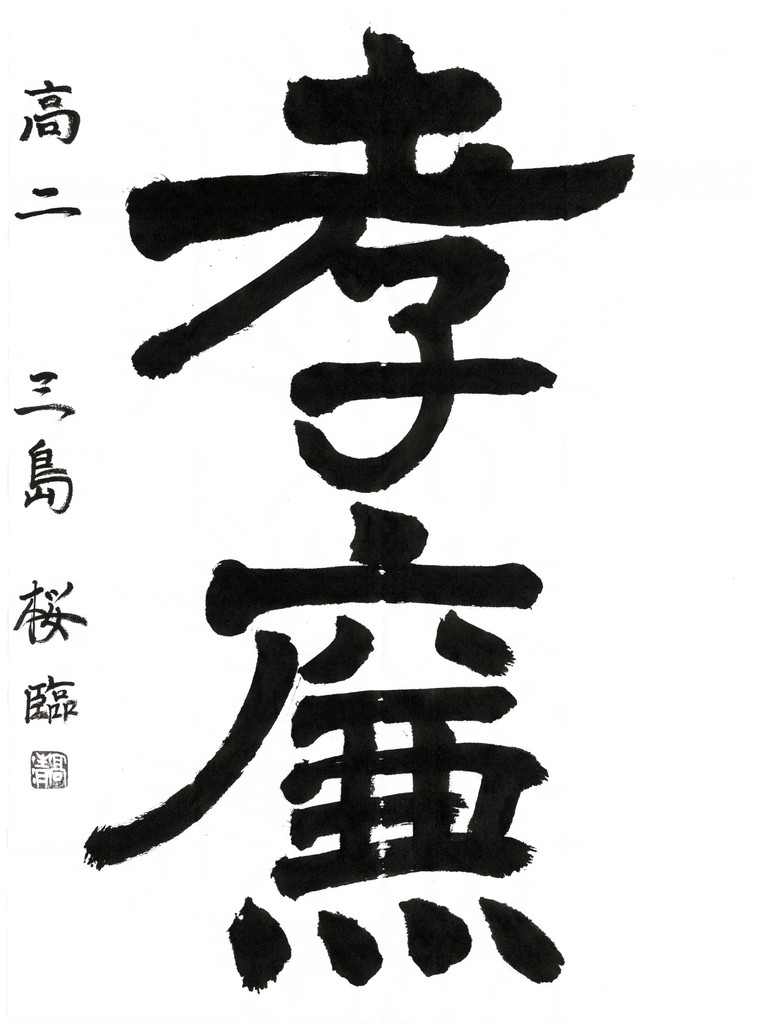 孝廉
高二 三島 桜臨